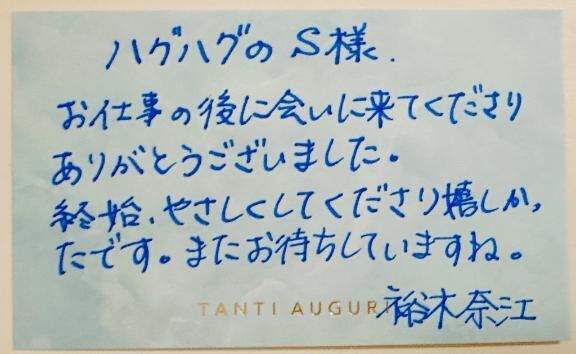 ハグハグの S様.
お仕事の後に会いに来てくださり
ありがとうございました。
終始、やさしくしてくださり嬉しかっ
たです。またお待ちしていますね。
TANTI AUGURI
裕木奈江